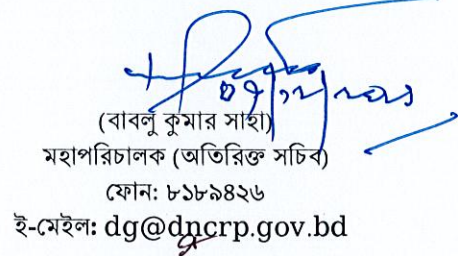 (বাবলু কুমার সাহা)
মহাপরিচালক (অতিরিক্ত সচিব)
ফোন: ৮১৮৯৪২৬
ই-মেইল: dg@dncrp.gov.bd